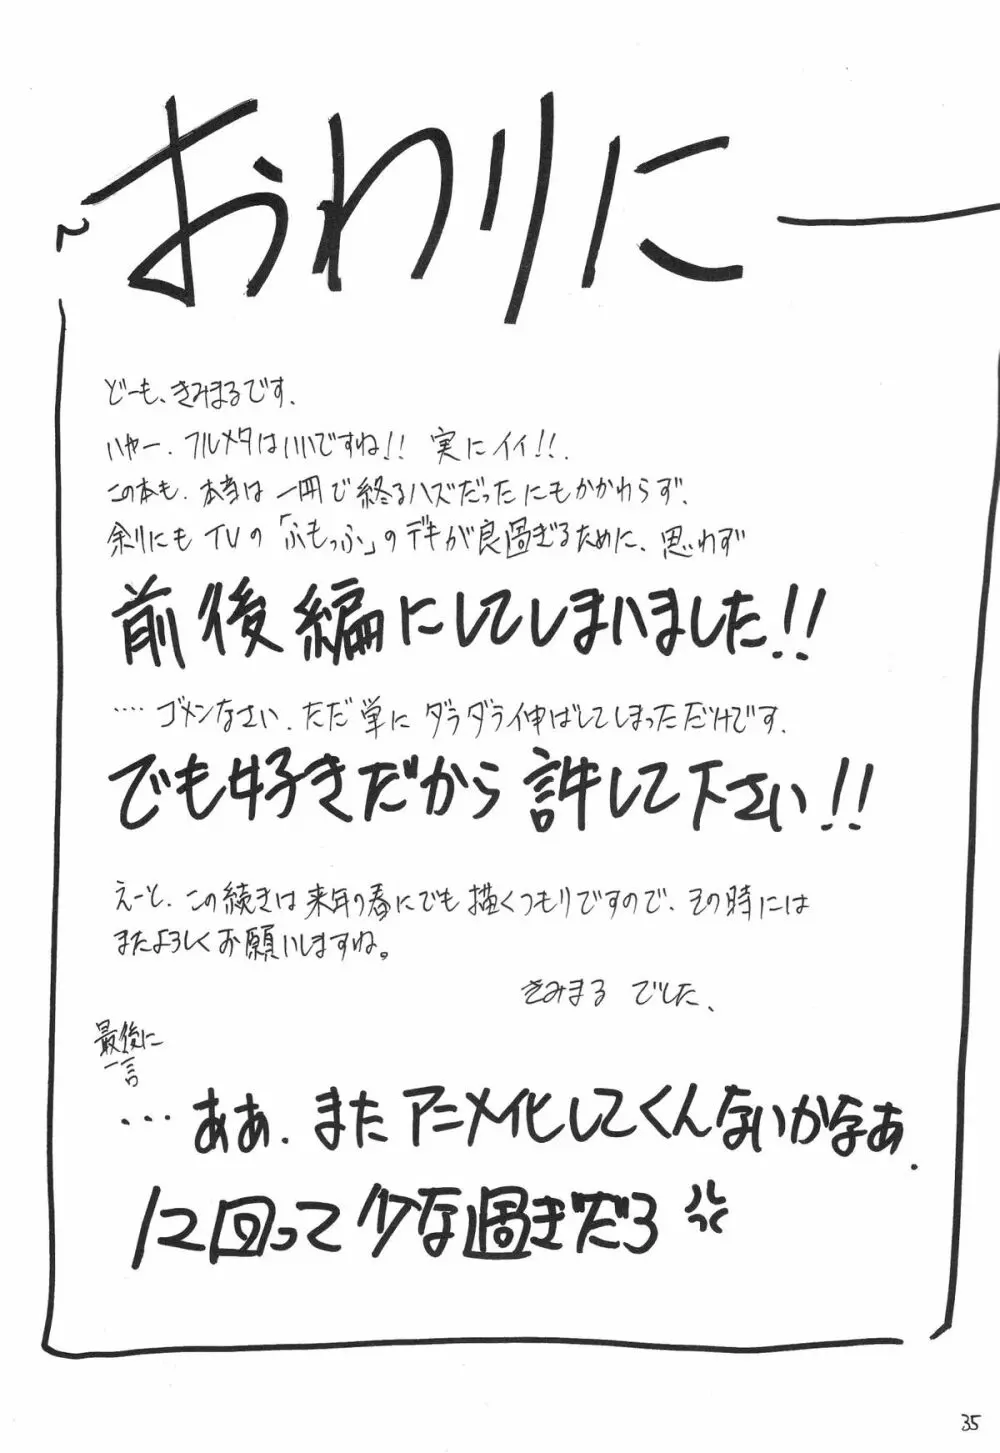 おわりに
どーも、きみまるです、
ハヤー、フルメタはいいですね!! 実にイイ!!、
この本も、本当は一冊で終るハズだったにもかかわらず、
余りにもTVの「ふもっふ」のデキが良過ぎるために、思わず
前後編にしてしまいました!!
‥‥ゴメンなさい、ただ単にダラダラ伸ばしてしまっただけです、
でも好きだから許して下さい!!
えーと、この続きは来年の春にでも描くつもりですので、その時には
またよろしくお願いしますね。
きみまる でした、
最後に
一言
…ああ、またアニメ化してくんないかなあ、
12回って少な過ぎだろ
35